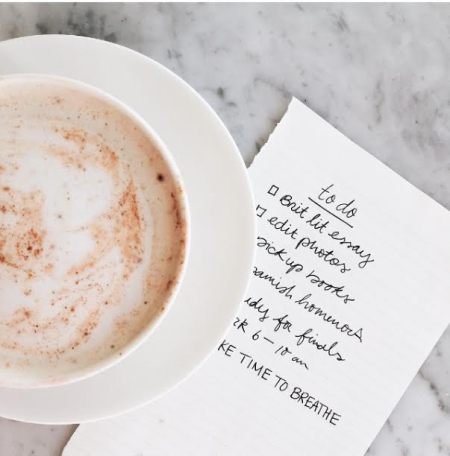 to do
Brit lit essay
edit photos
pick up books
anish homework
dy for finals
R 6-10 am
KE TIME TO BREATHE